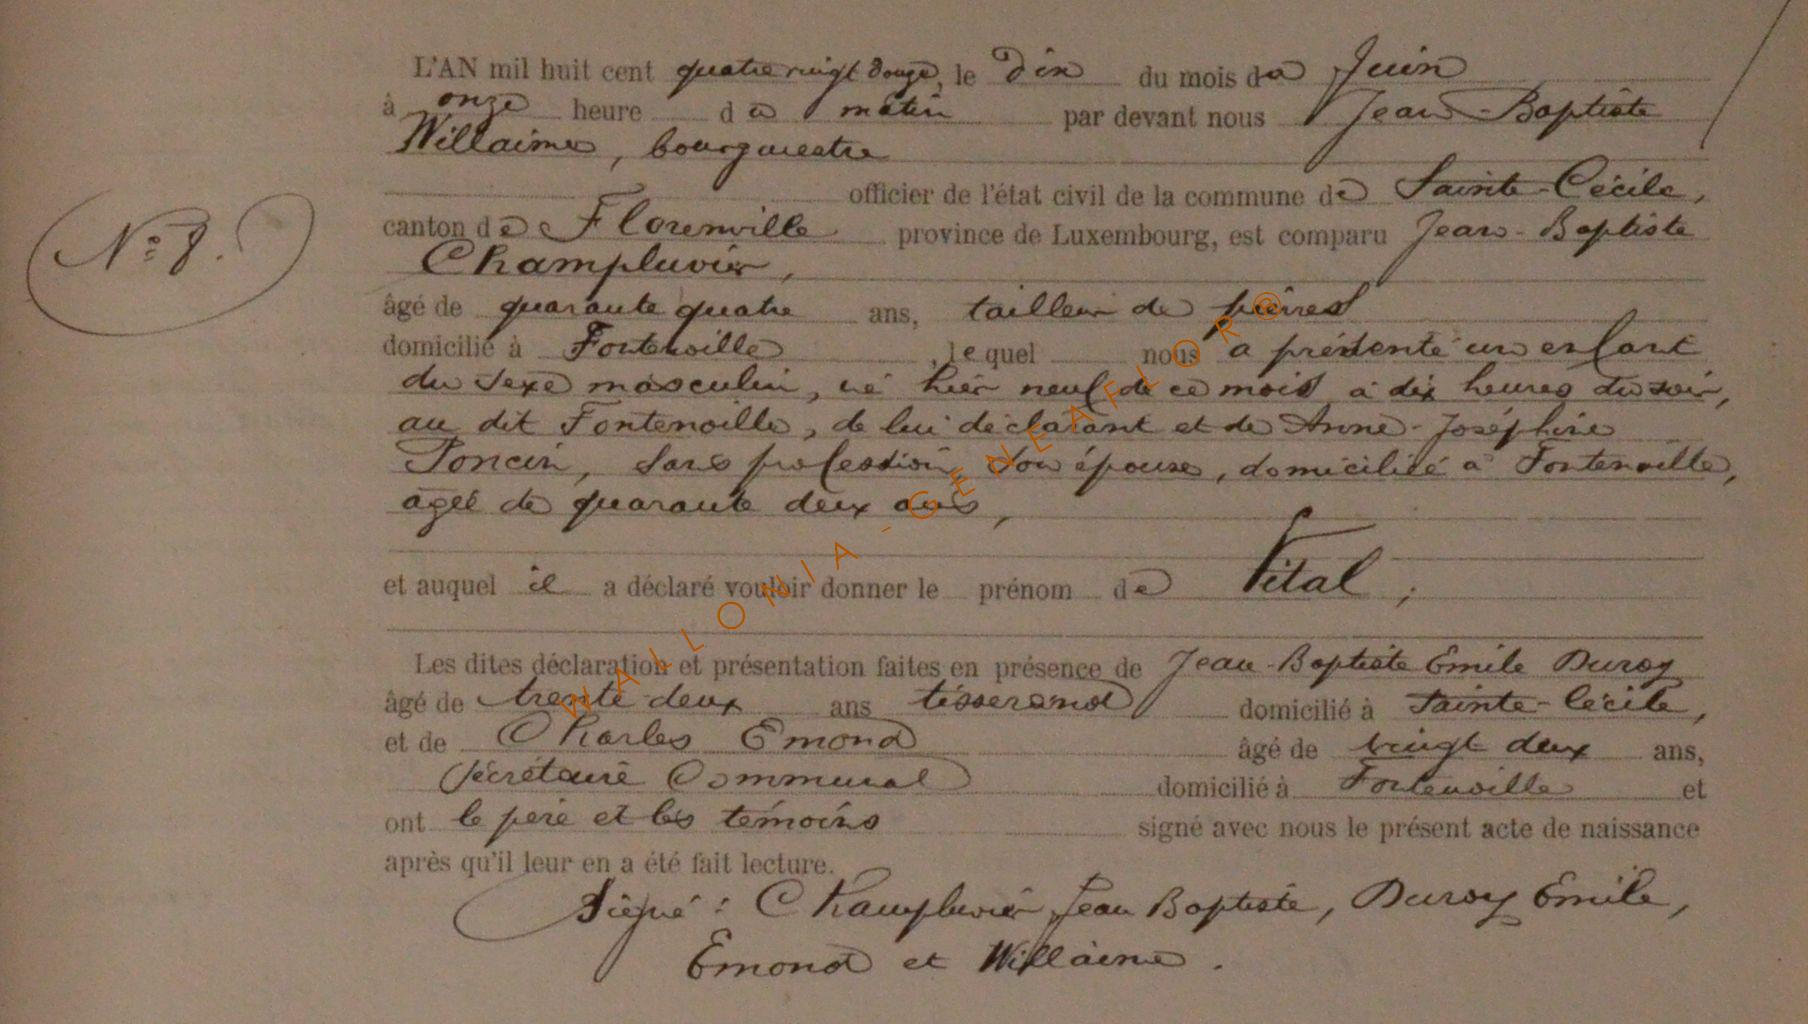 L'AN mil huit cent quatre vingt douze, le dix du mois de Juin
à onze heure du matin par devant nous Jean-Baptiste
Willaime, bourgmestre
officier de l'état civil de la commune de Sainte-Cécile,
canton de Florenville province de Luxembourg, est comparu Jean-Baptiste
N° 8.
Champluvier,
âgé de quarante quatre ans, tailleur de pierres
domicilié à Fontenoille, lequel nous a présenté un enfant
du sexe masculin, né hier neuf de ce mois à dix heures du soir,
au dit Fontenoille, de lui déclarant et de Anne-Joséphine
Poncin, sans profession son épouse, domiciliée à Fontenoille,
agée de quarante deux ans,
et auquel il a déclaré vouloir donner le prénom de Vital,
Les dites déclaration et présentation faites en présence de Jean-Baptiste Emile Duroy
âgé de trente deux ans tisserand domicilié à Sainte-Cécile,
et de Charles Emond âgé de vingt deux ans,
Sécrétaire Communal domicilié à Fontenoille et
ont le père et les témoins signé avec nous le présent acte de naissance
après qu'il leur en a été fait lecture.
Signé : Champluvier Jean Baptiste, Duroy Emile,
Emond et Willaime.
WALLONIA-GENEAFLOR®